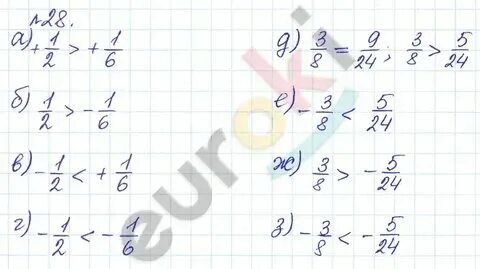 №28.
а) +1/2 > +1/6
б) 1/2 > -1/6
в) -1/2 < +1/6
г) -1/2 < -1/6
д) 3/8 = 9/24; 3/8 > 5/24
е) -3/8 < 5/24
ж) 3/8 > -5/24
з) -3/8 < -5/24
euroki